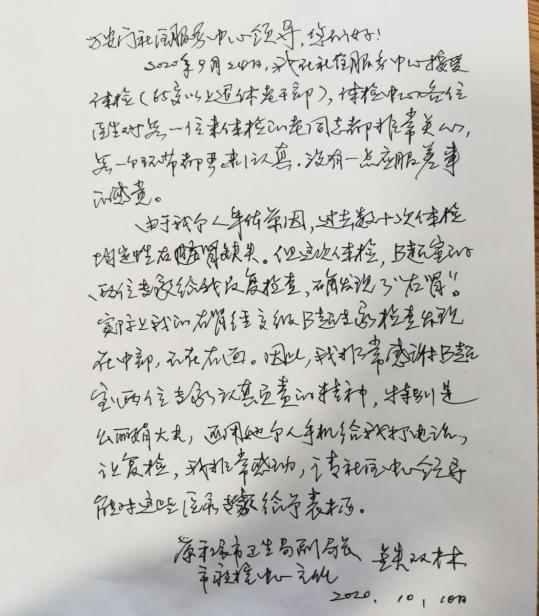 万安门社区服务中心领导，您们好！
2020年9月24日，我在社区服务中心接受
体检（65岁以上退休老干部），体检中心各位
医生对每一位来体检的老同志都非常关心，
每一个环节都要求认真，没有一点应服差事
的感觉。
由于我个人身体原因，过去数十次体检
均定性右肾缺失。但这次体检，B超室的
两位专家给我反复检查，确发现了“右肾”。
实际上我的右肾经文级B超专家检查发现
在中部，不在右面。因此，我非常感谢B超
室两位专家认真负责的精神，特别是
丽娟大夫，还用她个人手机给我打电话，
让复检，我非常感动，请社区中心领导
能对这些医务专家给予表扬。
原 市卫生局副局长
市 检中心主任
双林
2020.10.10日